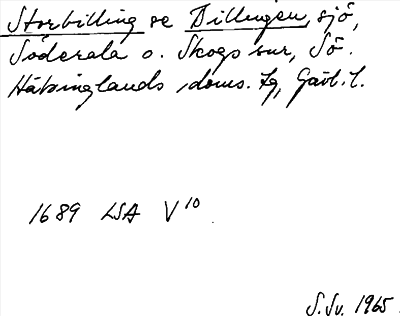 Storbilling se Billingen, sjö,
Söderala o. Skogs snr, Sö.
Hälsinglands doms. tg, Gävl. l.
1689 LSA V10
S. Sv. 1965.